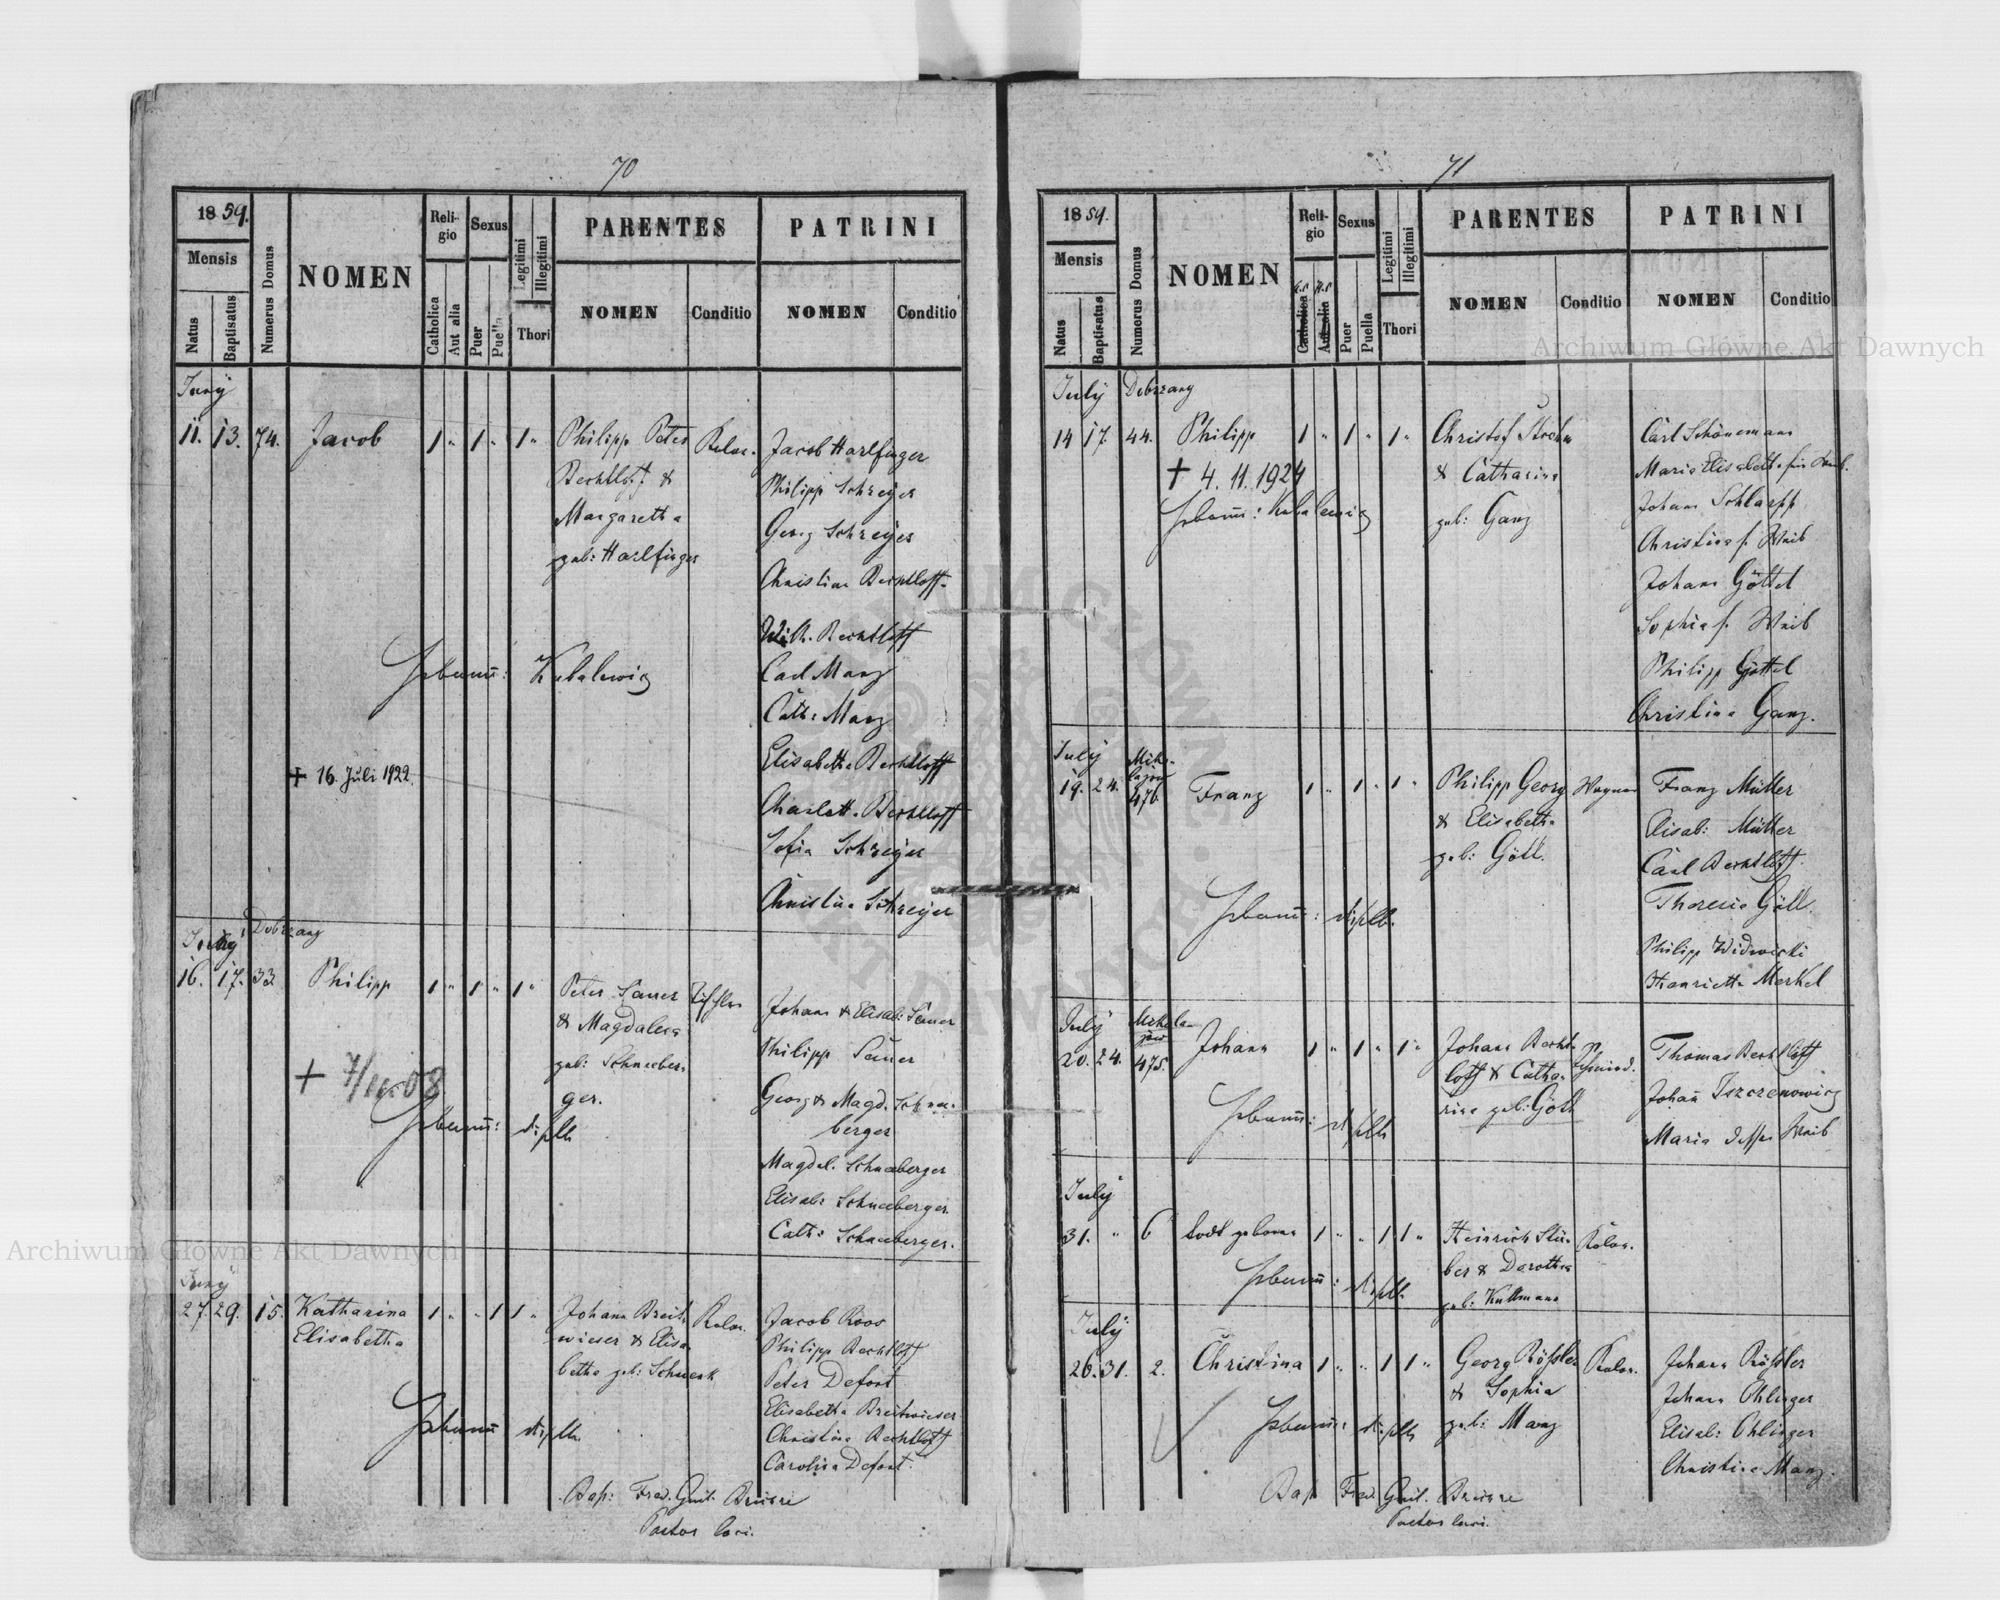 70
1859.
Mensis
Natus
Baptisatus
Numerus Domus
NOMEN
Reli-
gio
Catholica
Aut alia
Sexus
Puer
Puella
Legitimi
Illegitimi
Thori
PARENTES
NOMEN
Conditio
PATRINI
NOMEN
Conditio
Juny
11. 13. 74. Jacob 1 " 1 " 1 "
Philipp Peter
Bechtloff &
Margaretha
geb: Harlfinger
Kolon.
Jacob Harlfinger
Philipp Schreyer
Georg Schreyer
Christina Bechtloff
Wilh. Bechtloff
Carl Manz
Cath: Manz
Elisabetha Bechtloff
Charlott. Bechtloff
Sofia Schreyer
Christina Schreyer
Hebamm: Kubalewicz
+ 16. Juli 1922.
Juny Dobrzany
16. 17. 33. Philipp 1 " 1 " 1 "
Peter Sauer
& Magdalena
geb: Schneeber-
ger.
Tischler
Johann & Elisab: Sauer
Philipp Sauer
Georg & Magd. Schnee-
berger
Magdal. Schneeberger
Elisab: Schneeberger
Cath: Schneeberger.
Hebamm: diselb
Juny
27. 29. 15. Katharina 1 " " 1 1 "
Elisabetha
Johann Breit-
wieser & Elisa-
betha geb: Schwenk
Kolon.
Jacob Roos
Philipp Bechtloff
Peter Defort
Elisabetha Breitwieser
Christina Bechtloff
Carolina Defort.
Hebamm diselb
Bap: Fred. Guil.
Pastor loci.
71
1859.
Mensis
Natus
Baptisatus
Numerus Domus
NOMEN
Reli-
gio
Catholica
Aut alia
Sexus
Puer
Puella
Legitimi
Illegitimi
Thori
PARENTES
NOMEN
Conditio
PATRINI
NOMEN
Conditio
July Dobrzany
14 17. 44. Philipp 1 " 1 " 1 "
+ 4. 11. 1924
Hebamm: Kubalewicz
Christof
& Catharina
geb: Ganz
Carl Schönemann
Maria Elisabetha sein Weib.
Johann Schlapp
Christina s. Weib
Johann Göttel
Sophia s. Weib
Philipp Göttel
Christina Ganz.
July Miko-
lajow
19. 24. 476. Franz 1 " 1 " 1 "
Philipp Georg
& Elisabetha
geb: Göll.
Wagner
Franz Müller
Elisab: Müller
Carl Bechtloff.
Theresia Göll.
Philipp
Henrietta Merkel
Hebamm: diselb.
July Mikola-
jow
20. 24. 475. Johann 1 " 1 " 1 "
Johann Becht-
loff & Catha-
rina geb: Göll
Schmied.
Thomas Bechtloff
Johann Iszczenowicz
Maria dessen Weib
Hebamm: diselb
July
31. " 6 todt geboren 1 " " 1 1 "
Heinrich Stü-
ber & Dorothea
geb: Kullmann
Kolon.
Hebamm: diselb
July
26. 31. 2. Christina 1 " " 1 1 "
Georg Rößler
& Sophia
geb: Manz
Kolon.
Johann Rößler
Johann Ohlinger
Elisab: Ohlinger
Christina Manz.
Hebamm: diselb
Bap Fred. Guil.
Pastor loci.
Archiwum Główne Akt Dawnych
Archiwum Główne Akt Dawnych